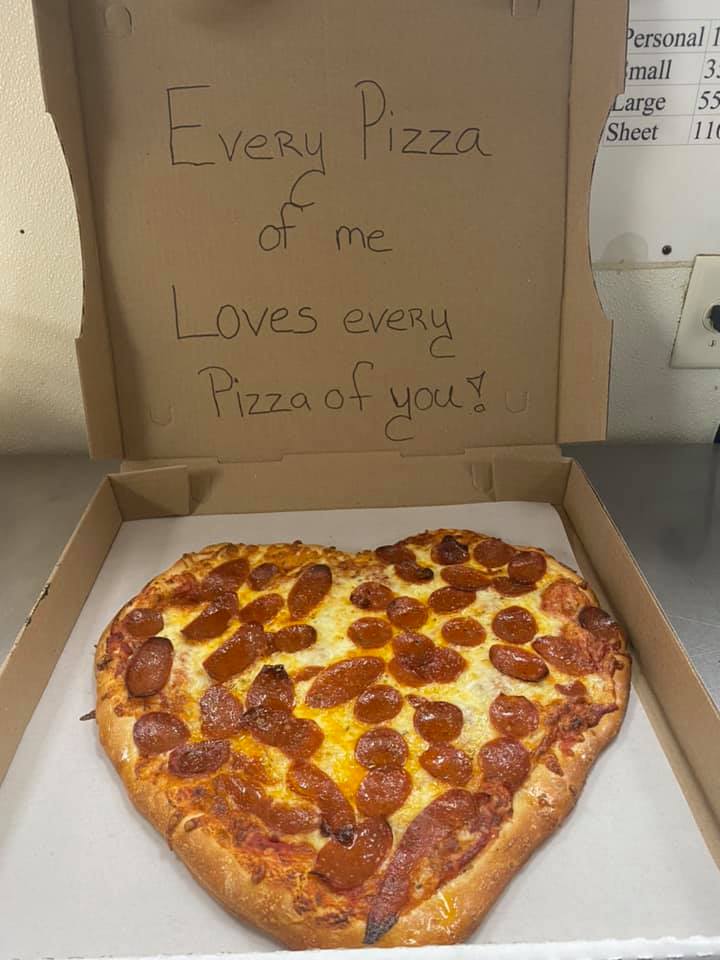 Every Pizza
of me
Loves every
Pizza of you!
Personal 1
Small 3
Large 55
Sheet 110